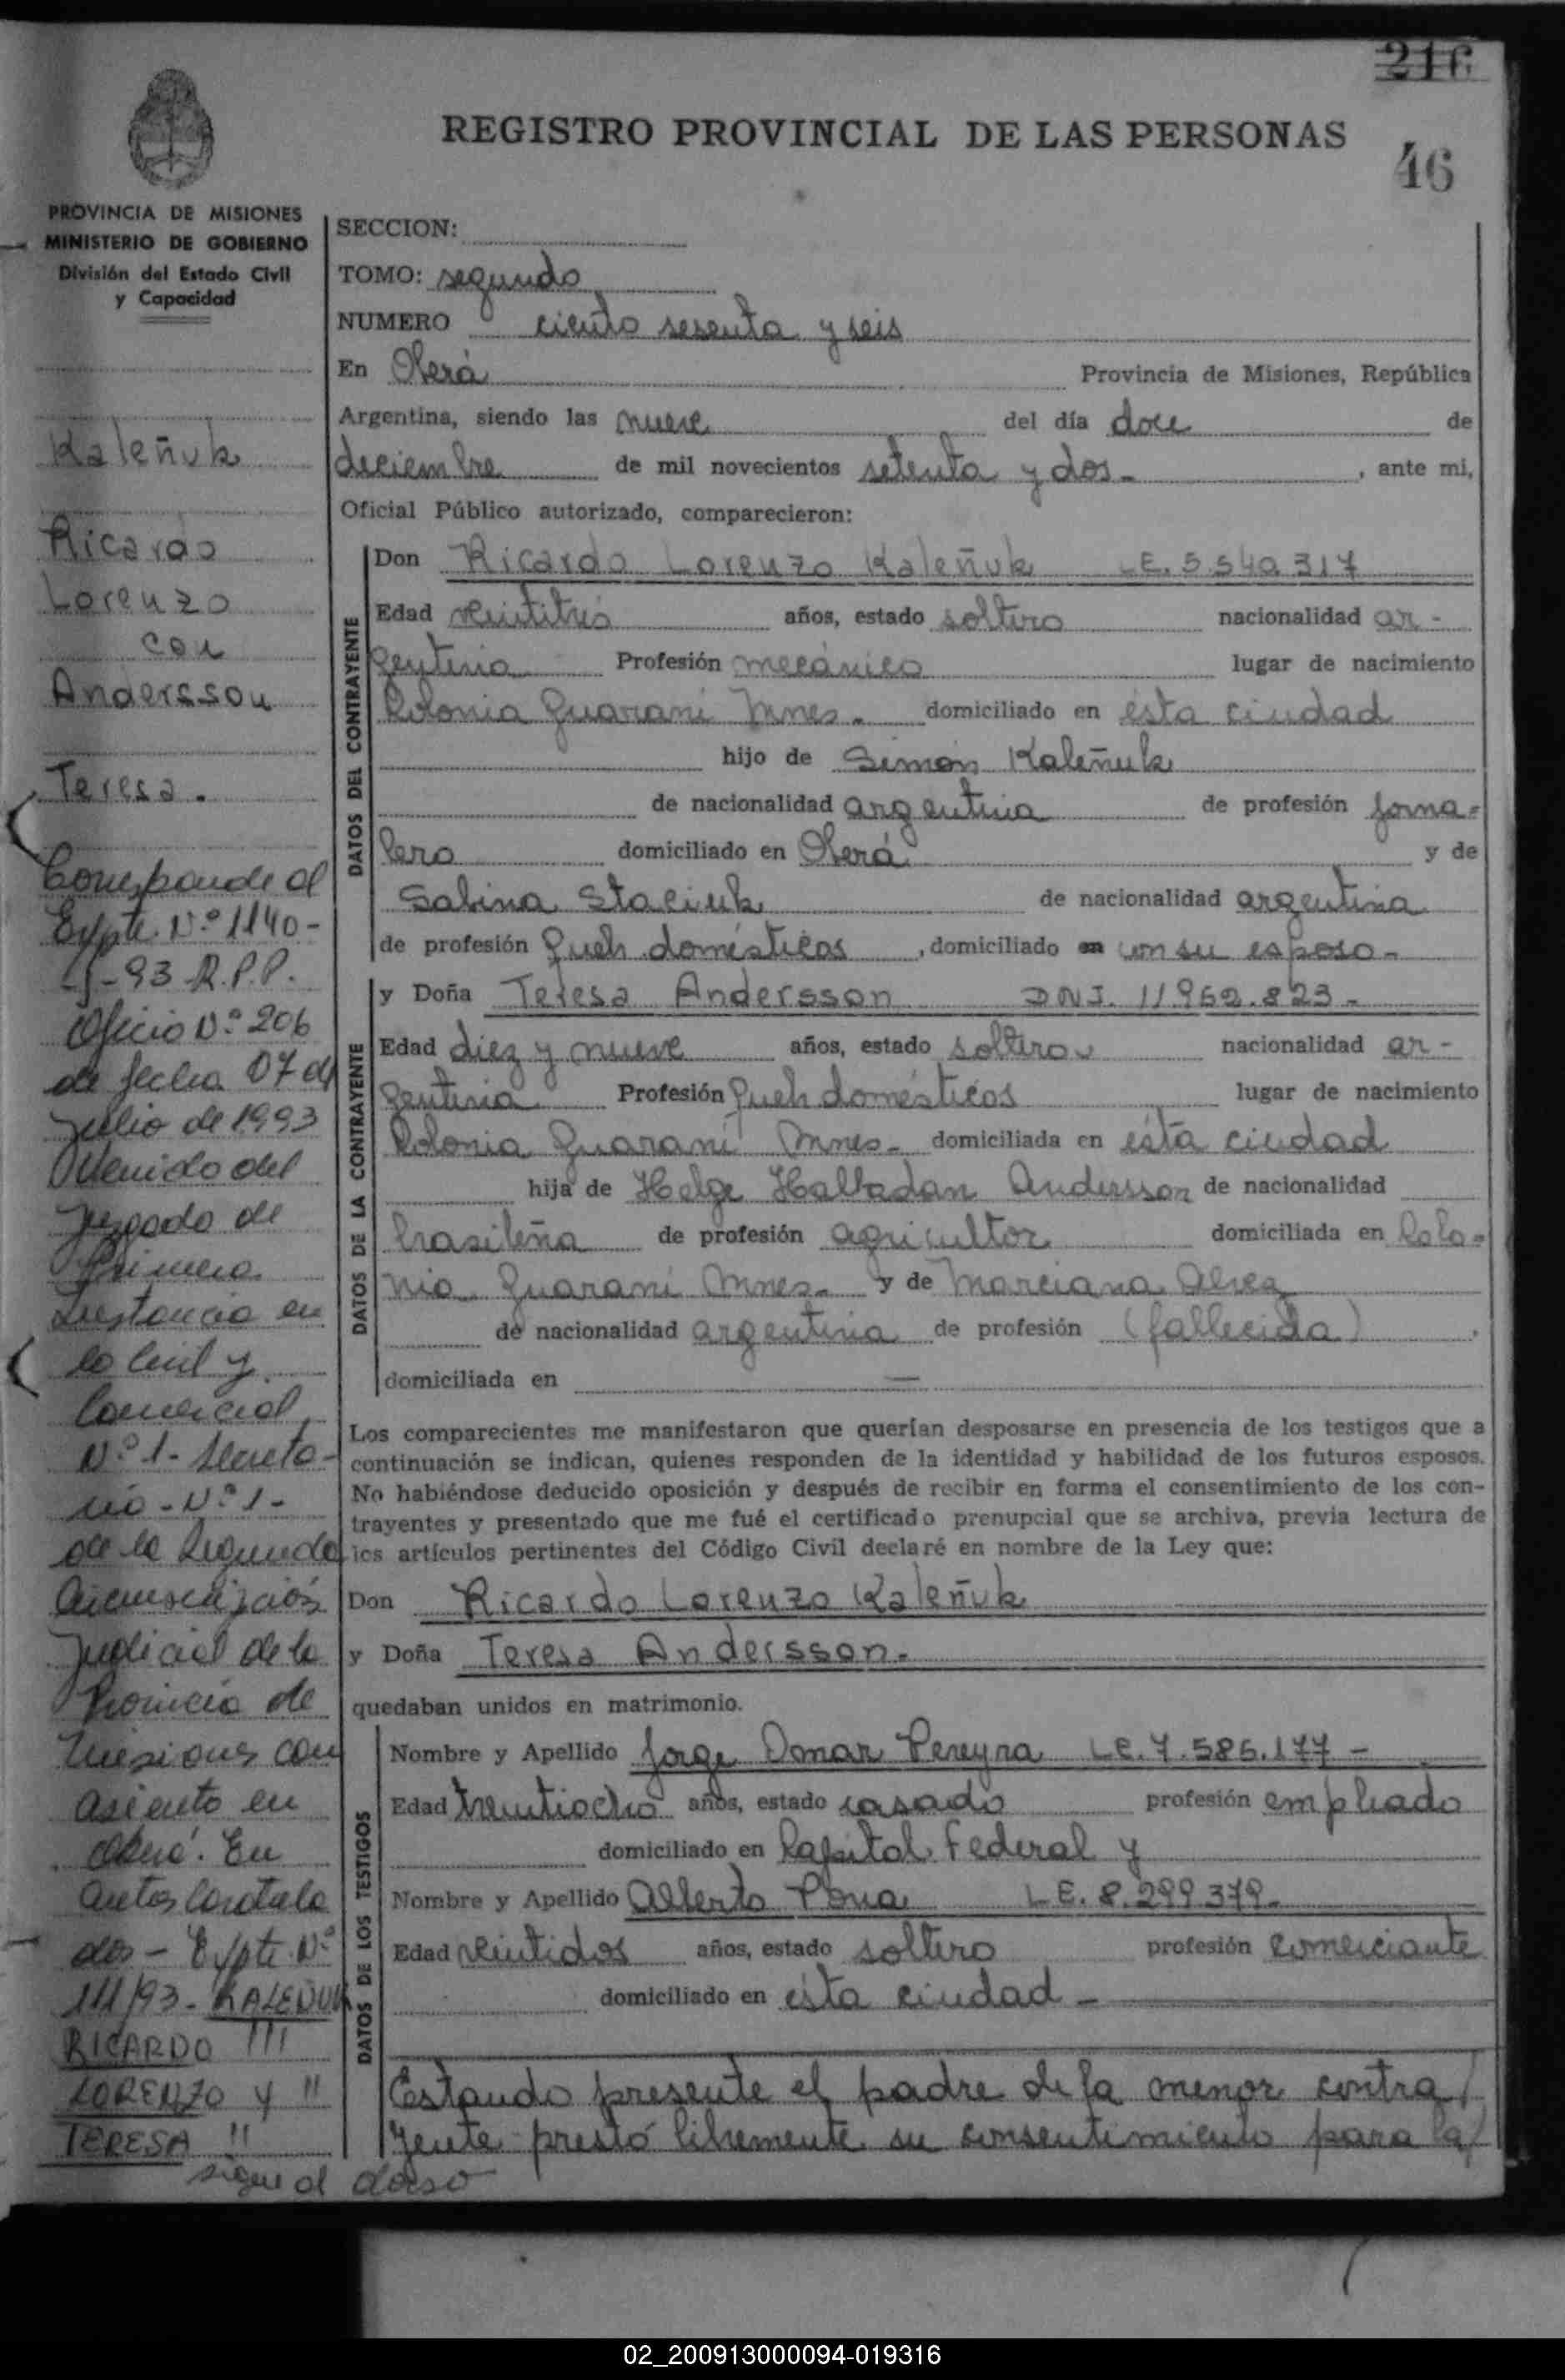 216
REGISTRO PROVINCIAL DE LAS PERSONAS
46
PROVINCIA DE MISIONES
MINISTERIO DE GOBIERNO
División del Estado Civil
y Capacidad
Kaleñuk
Ricardo
Lorenzo
con
Andersson
Teresa.
Corresponde al
Expte. Nº 1140-
-93 R.P.P.
Oficio Nº 206
de fecha 07 de
Julio de 1993
Venido del
Juzgado de
Primera
Instancia en
lo Civil y
Comercial
Nº 1- Secreta-
ria - Nº 1-
de la Segunda
Circunscripción
Judicial de la
Provincia de
Misiones con
asiento en
Oberá. En
autos caratula
dos - Expte. Nº
111/93 - KALEÑUK
RICARDO
LORENZO y
TERESA
sigue al dorso
SECCION:
TOMO: segundo
NUMERO ciento sesenta y seis
En Oberá Provincia de Misiones, República
Argentina, siendo las nueve del día doce de
diciembre de mil novecientos setenta y dos- , ante mi,
Oficial Público autorizado, comparecieron:
DATOS DEL CONTRAYENTE
Don Ricardo Lorenzo Kaleñuk LE. 5.540.317
Edad veintitrés años, estado soltero nacionalidad ar-
gentina Profesión mecánico lugar de nacimiento
Colonia Guaraní Mnes. domiciliado en ésta ciudad
hijo de Simón Kaleñuk
de nacionalidad argentina de profesión jorna-
lero domiciliado en Oberá y de
Sabina Staciuk de nacionalidad argentina
de profesión Queh. domésticos , domiciliado en con su esposo-
DATOS DE LA CONTRAYENTE
y Doña Teresa Andersson DNI. 11.952.823-
Edad diez y nueve años, estado soltera nacionalidad ar-
gentina Profesión Queh domésticos lugar de nacimiento
Colonia Guaraní Mnes- domiciliada en ésta ciudad
hija de Helge Halbadan Andersson de nacionalidad
brasileña de profesión agricultor domiciliada en Colo-
nia Guaraní Mnes- y de Marciana Alvez
de nacionalidad argentina de profesión (fallecida) ,
domiciliada en —
Los comparecientes me manifestaron que querían desposarse en presencia de los testigos que a
continuación se indican, quienes responden de la identidad y habilidad de los futuros esposos.
No habiéndose deducido oposición y después de recibir en forma el consentimiento de los con-
trayentes y presentado que me fué el certificado prenupcial que se archiva, previa lectura de
los artículos pertinentes del Código Civil declaré en nombre de la Ley que:
Don Ricardo Lorenzo Kaleñuk
y Doña Teresa Andersson.
quedaban unidos en matrimonio.
DATOS DE LOS TESTIGOS
Nombre y Apellido Jorge Omar Pereyra LE. 7.585.177-
Edad treintiocho años, estado casado profesión empleado
domiciliado en Capital Federal y
Nombre y Apellido Alberto Pona LE. 8.299.379-
Edad veintidos años, estado soltero profesión comerciante
domiciliado en ésta ciudad-
Estando presente el padre de la menor contra/
yente prestó libremente su consentimiento para la/
02_200913000094-019316